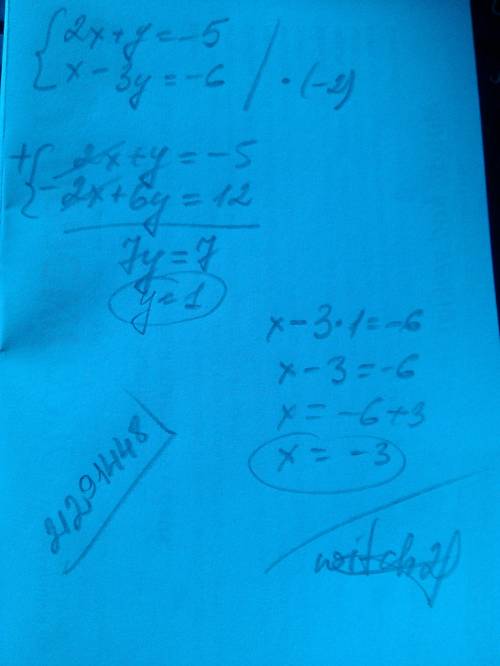 {2x+y=-5
{x-3y=-6 / • (-2)
+{2x+y=-5
{-2x+6y=12
7y=7
y=1
x-3•1=-6
x-3=-6
x=-6+3
x=-3
21291448